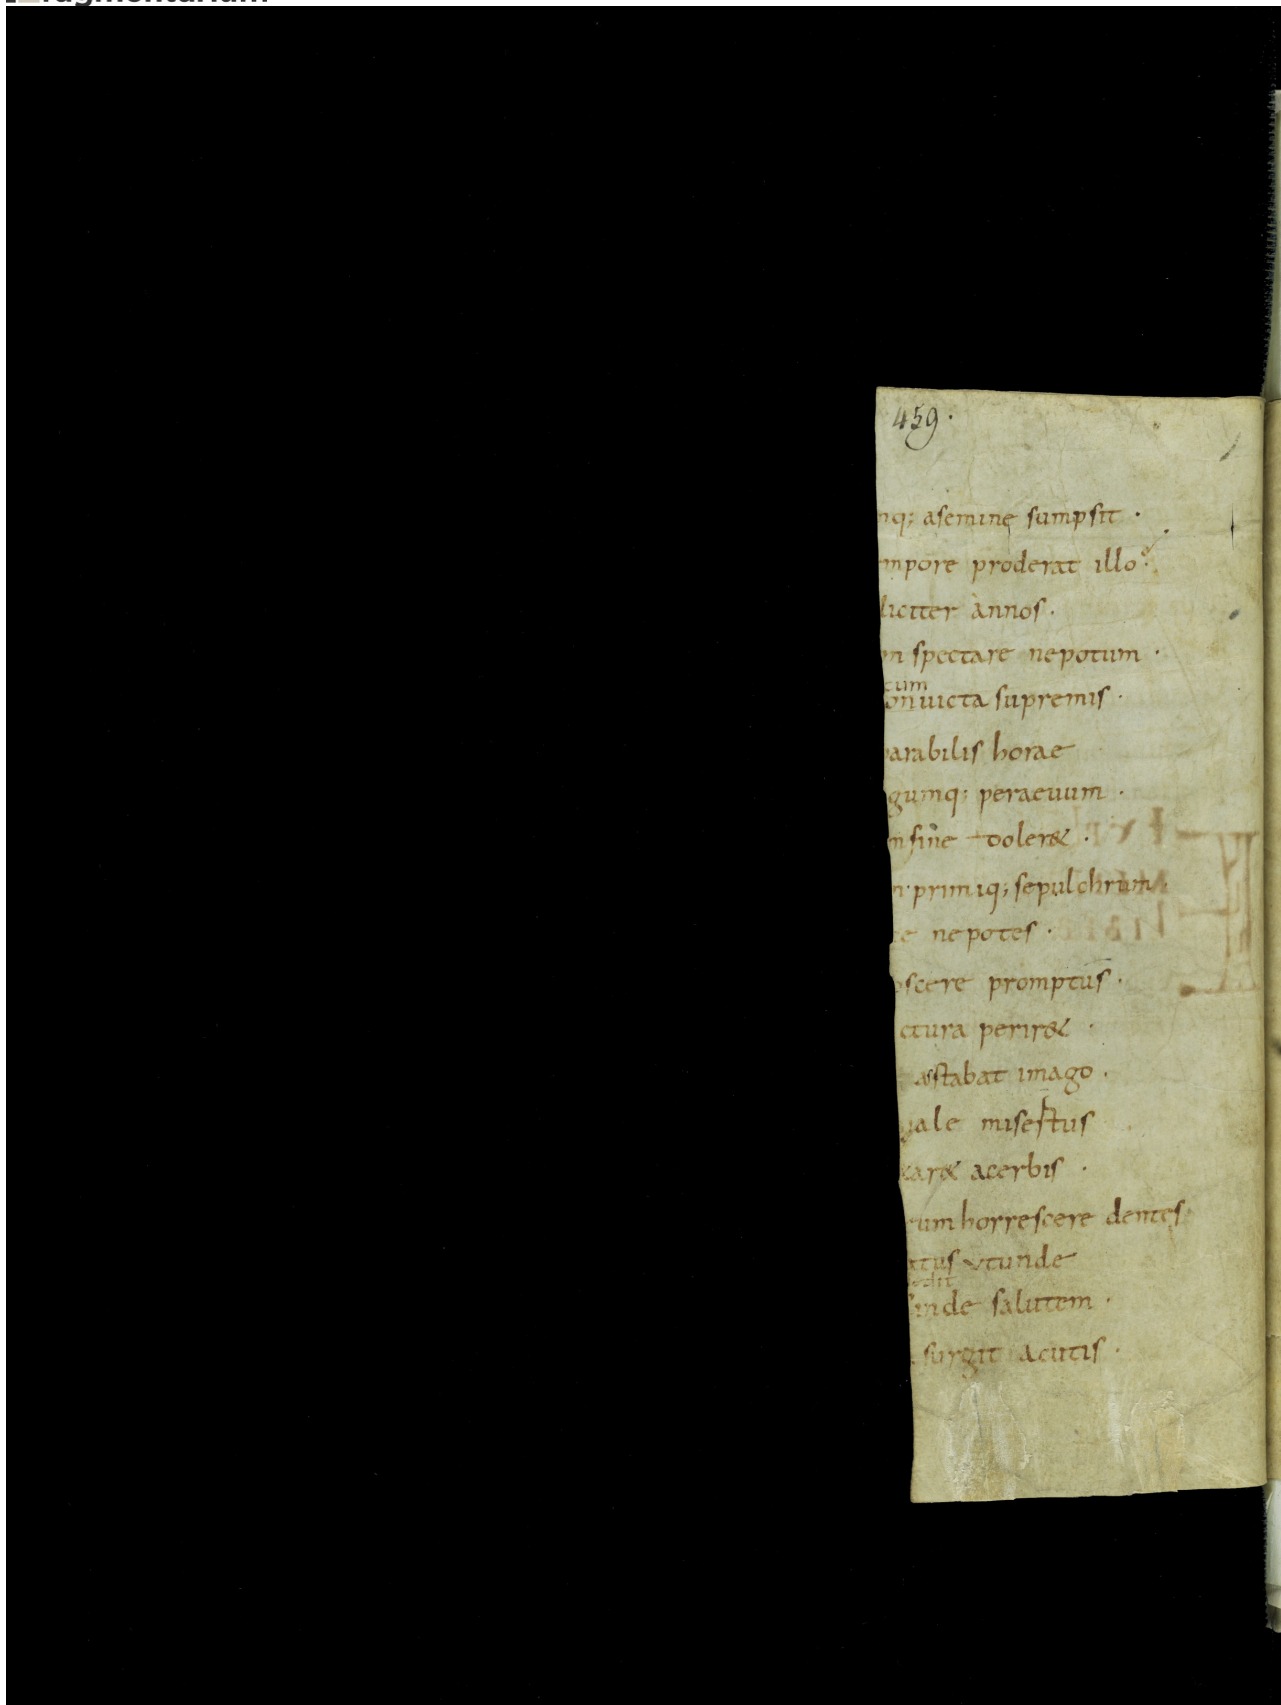 459.
nq; asemine sumpsit ·
mpore proderat illo
liciter annos ·
m spectare nepotum ·
cum
onuicta supremis ·
arabilis horae
gumq; peraeuum ·
n fine doler& ·
n primiq; sepulchrum
e nepotes ·
oscere promptus ·
ctura perir& ·
æstabat imago ·
ale misestus
ar& acerbis ·
cum horrescere dentes
atus vtunde
inde salutem ·
surgit acutis ·